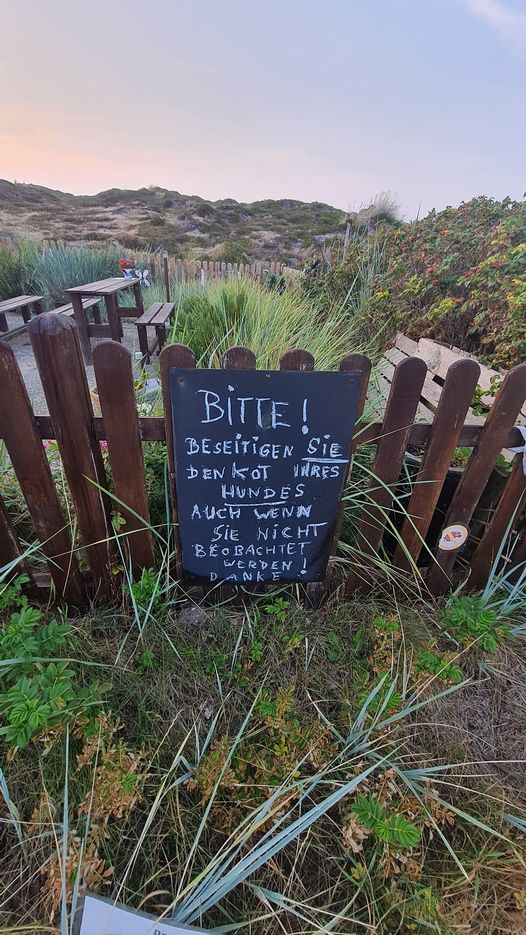 BITTE!
BESEITIGEN SIE
DEN KOT IHRES
HUNDES
AUCH WENN
SIE NICHT
BEOBACHTET
WERDEN!
DANKE